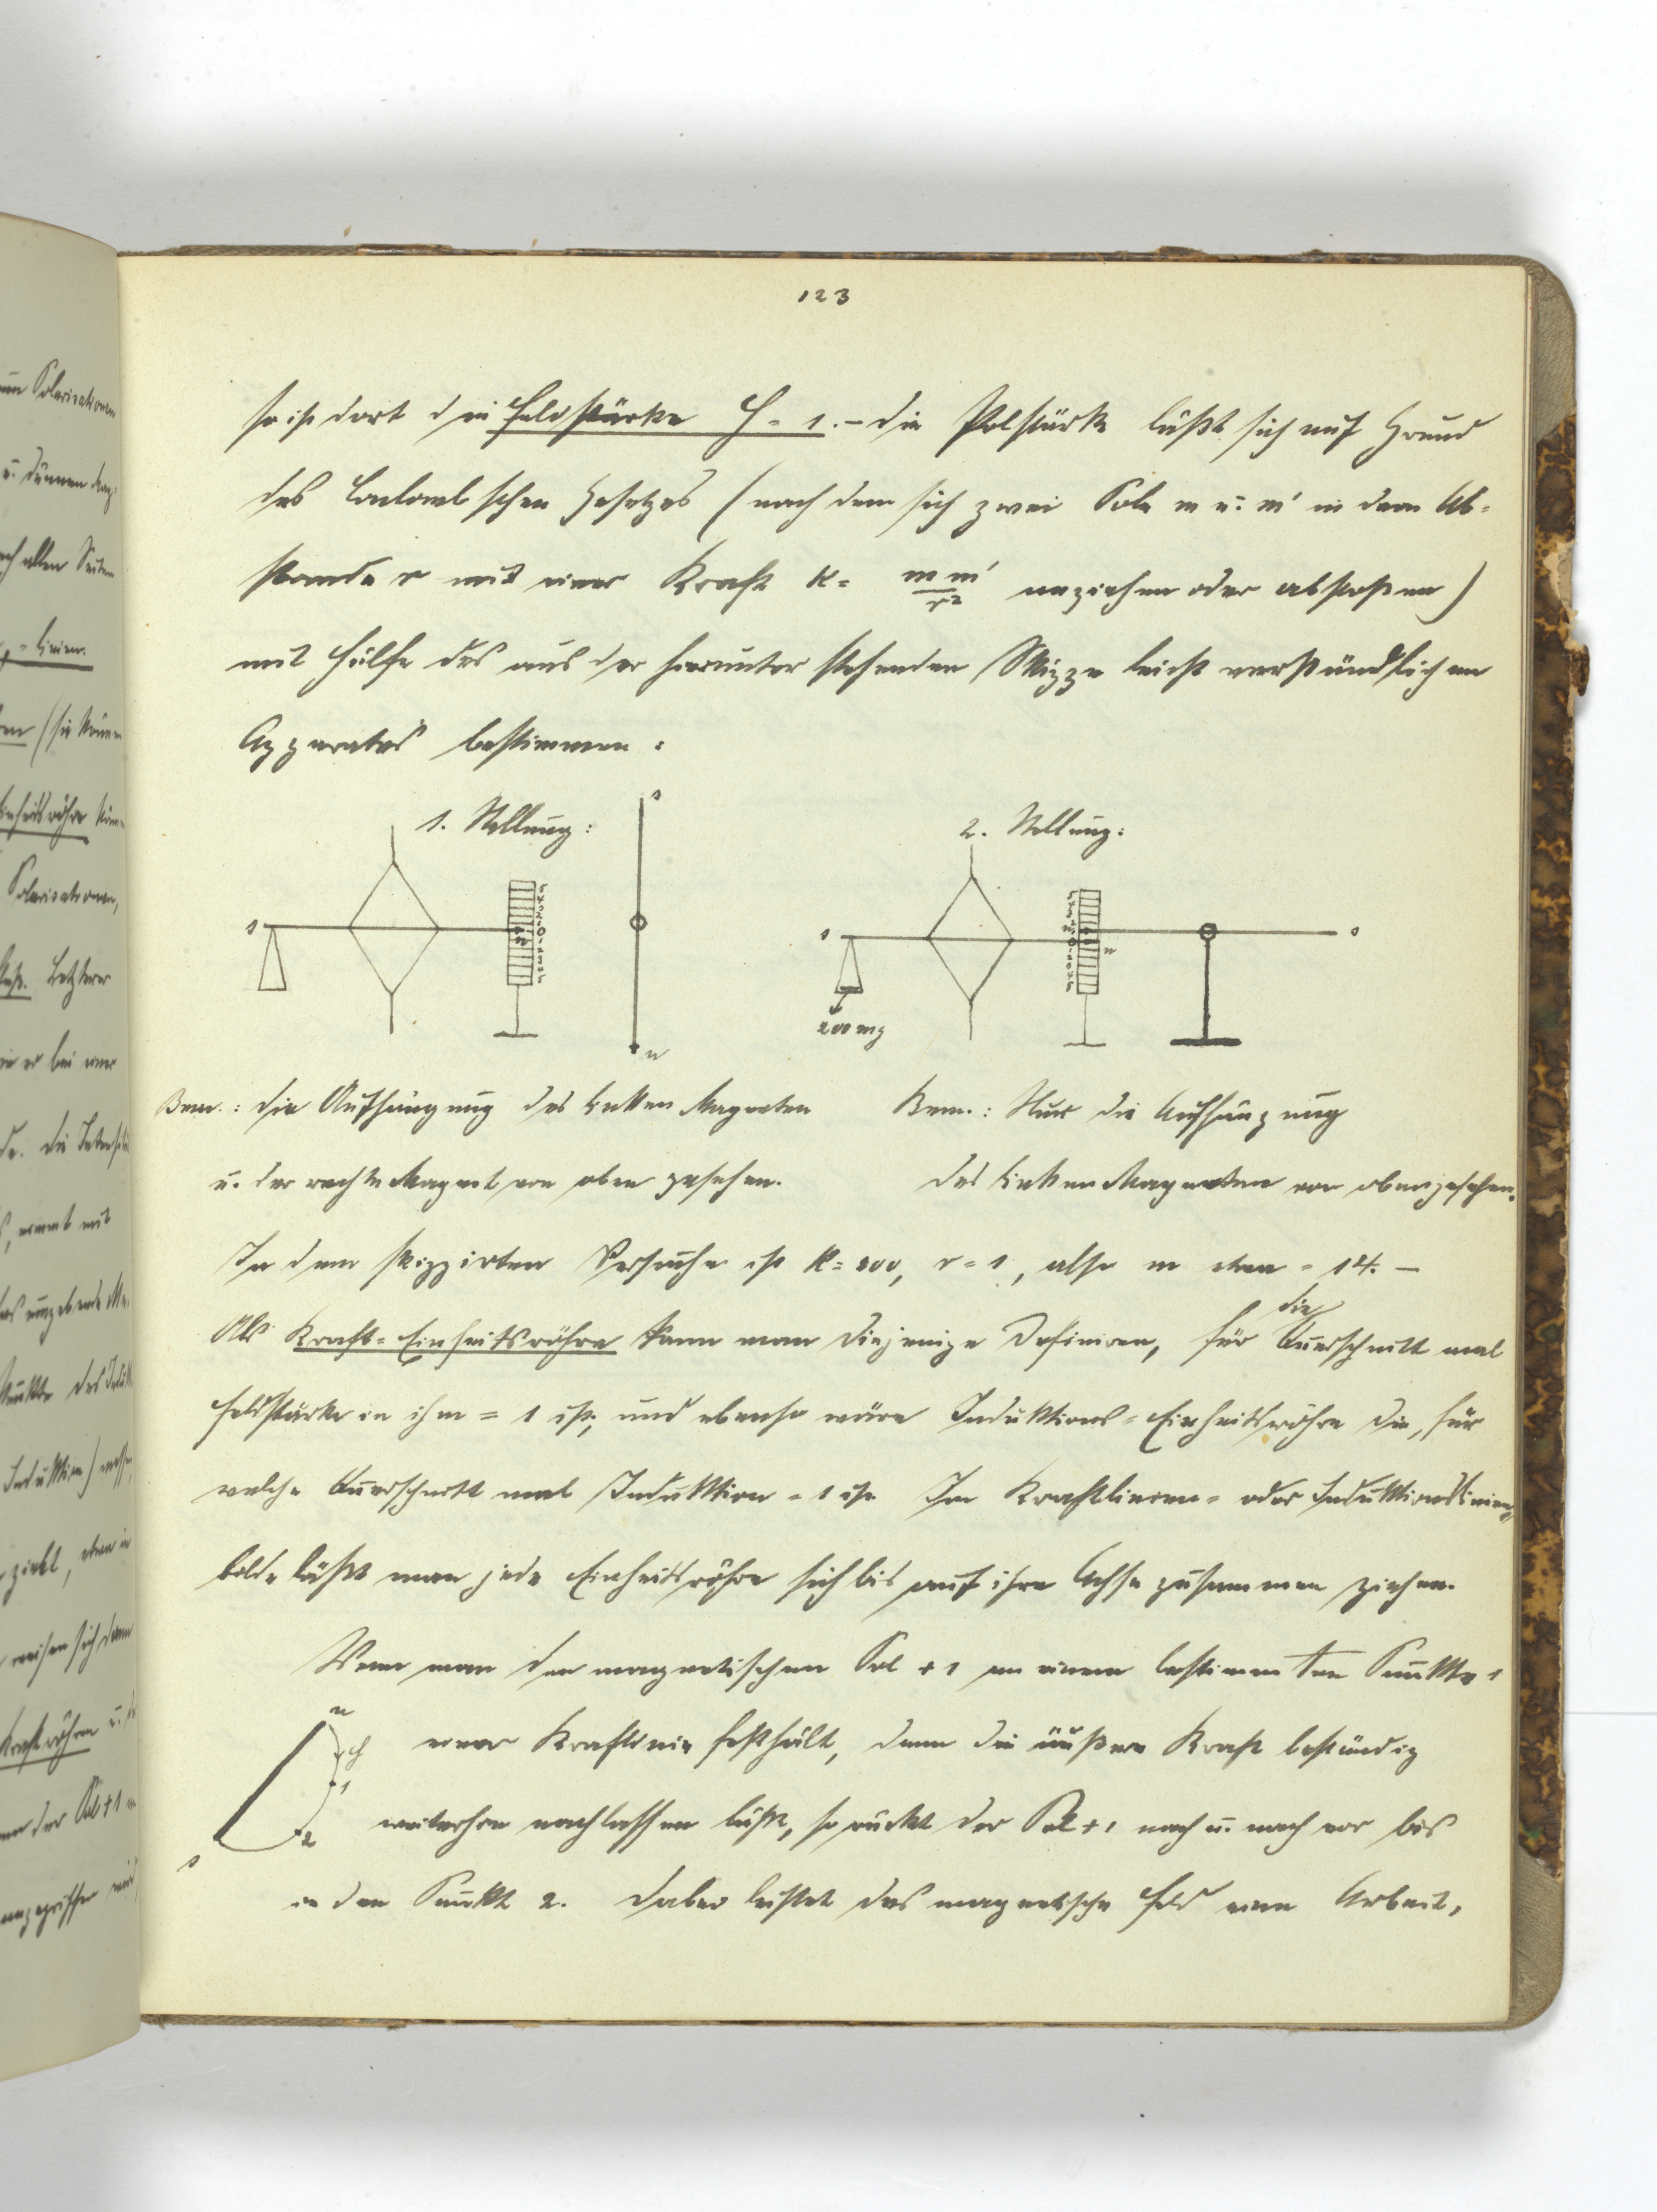 123
so ist dort die Feldstärke H = 1. – Die Polstärke läßt sich auf Grund
des Coulomb'schen Gesetzes (nach dem sich zwei Pole m u. m' in dem Ab-
stande r mit einer Kraft K = m m' / r² anziehen oder abstoßen)
mit Hülfe des aus der hierunter stehenden Skizze leicht verständlichen
Apparates bestimmen:
1. Stellung:
2. Stellung:
200 mg
Bem.: Die Aufhängung des linken Magneten
u. der rechte Magnet von oben gesehen.
Bem.: Nur die Aufhängung
des linken Magneten von oben gesehen.
In dem skizzirten Versuche ist K = 200, r = 1, also m etwa = 14. –
Als Kraft-Einheitsröhre kann man diejenige definiren, für die Querschnitt mal
Feldstärke in ihm = 1 ist; und ebenso wäre Induktions-Einheitsröhre die, für
welche Querschnitt mal Induktion = 1 ist. Im Kraftlinien- oder Induktionslinien-
bilde läßt man jede Einheitsröhre sich bis auf ihre Achse zusammen ziehen.
Wenn man den magnetischen Pol +1 an einem bestimmten Punkte 1
einer Kraftlinie festhält, dann die äußere Kraft beständig
nachlassen läßt, so rückt der Pol +1 nach u. nach vor bis
in den Punkt 2. Dabei leistet das magnetische Feld eine Arbeit,
n
H
1
2
s